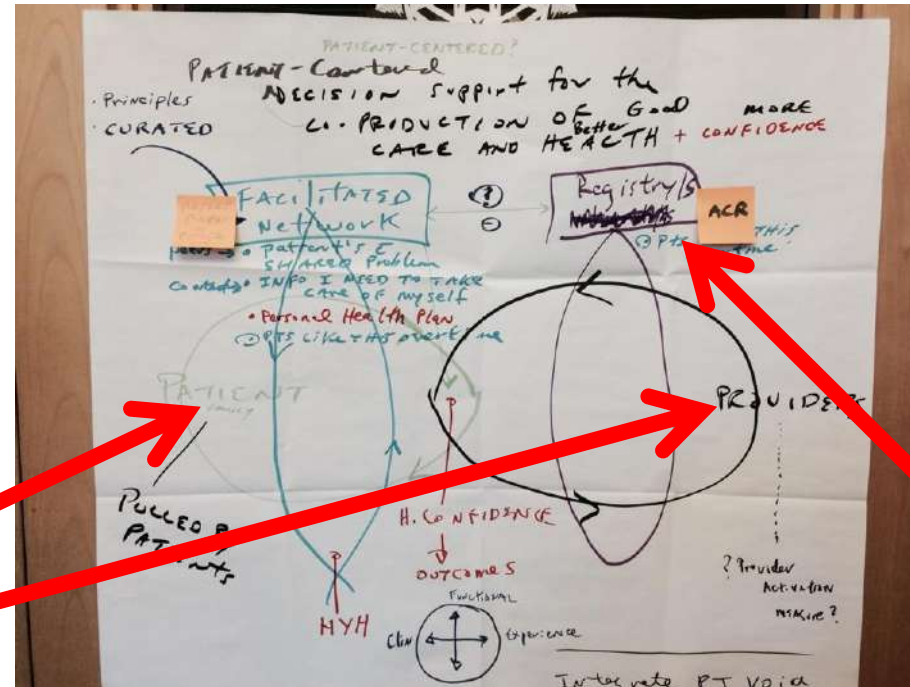 PATIENT-CENTERED?
PATIENT-Centered
DECISION SUPPORT for the
CO-PRODUCTION OF Good MORE
Better
CARE AND HEALTH + CONFIDENCE
• Principles
• CURATED
FACILITATED
NETWORK
Registry/s
ACR
PTS THIS
time
patient's &
SHARED Problem
INFO I NEED TO TAKE
CARE OF myself
• Personal Health Plan
PTS LIKE THIS over time
PATIENT
PROVIDERS
PULLED BY
PATIENTS
H. CONFIDENCE
OUTCOMES
FUNCTIONAL
Clin Experience
HYH
? Provider
Activation
measure?
Integrate PT Voice